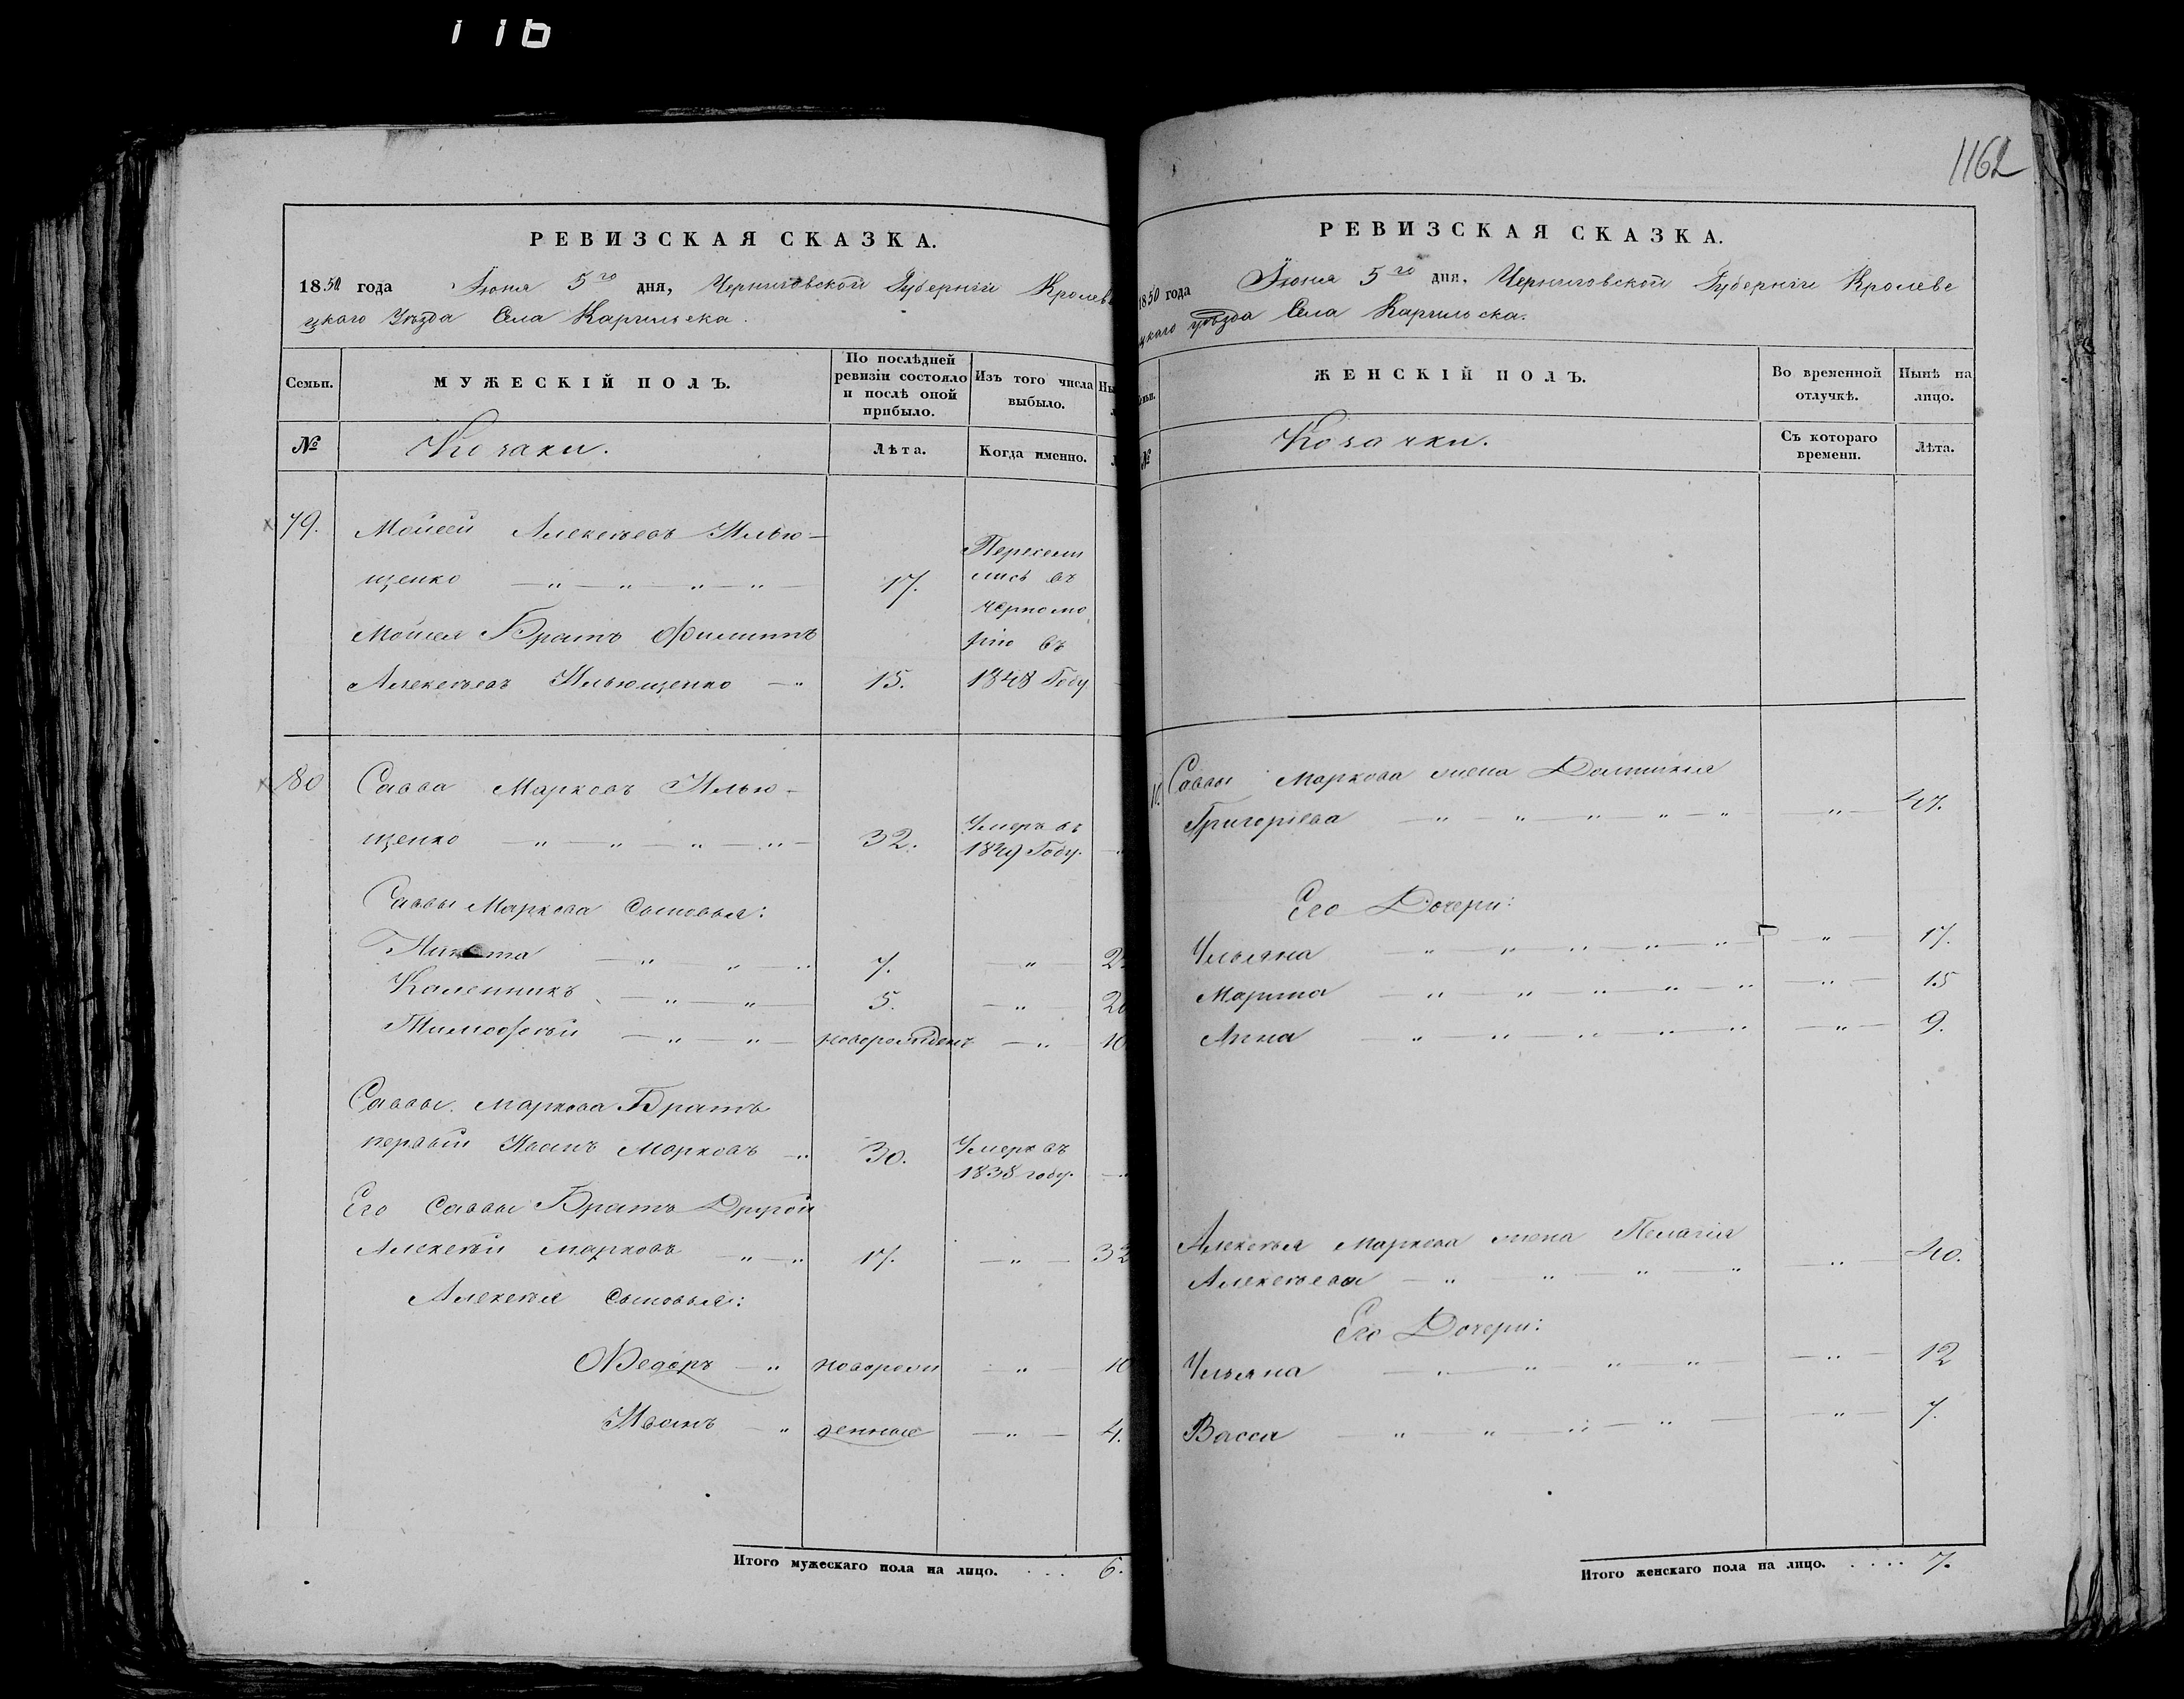 116
РЕВИЗСКАЯ СКАЗКА.
1850 года Іюня 5го дня, Черниговской Губерніи Кролеве
цкаго Уѣзда Села Карыльска.
Семьи.
МУЖЕСКІЙ ПОЛЪ.
По послѣдней
ревизіи состояло
и послѣ оной
прибыло.
Изъ того числа
выбыло.
№
Козаки.
Лѣта.
Когда именно.
79.
Мойсей Алексѣевъ Илью-
щенко 17.
Мойсея Братъ Филиппъ
Алексѣевъ Ильющенко 15.
Пересели
лись въ
черномо
рію въ
1848 Году
80
Савва Марковъ Илью-
щенко 32.
Умеръ въ
1849 Году.
Саввы Маркова Сыновья:
Никита 7.
Каленникъ 5. 20
Тимофѣй новорожденъ 10
Саввы Маркова Братъ
первый Иванъ Марковъ 30.
Умеръ въ
1838 году.
Его Саввы Братъ Другой
Алексѣй Марковъ 17. 32
Алексѣя Сыновья:
Ѳедоръ новорож 10
Иванъ денные 4.
Итого мужескаго пола на лицо. . . . 6.
1162
РЕВИЗСКАЯ СКАЗКА.
1850 года Іюня 5го дня, Черниговской Губерніи Кролеве
цкаго уѣзда Села Карыльска.
ЖЕНСКІЙ ПОЛЪ.
Во временной
отлучкѣ.
Нынѣ на
лицо.
№
Козачки.
Съ котораго
времени.
Лѣта.
Саввы Маркова жена Домникія
Григоріева 47.
Его Дочери:
Ульяна 17.
Марта 15
Анна 9.
Алексѣя Маркова жена Пелагія
Алексѣева 40.
Его Дочери:
Ульяна 12
Васса 7.
Итого женскаго пола на лицо. . . . . 7.